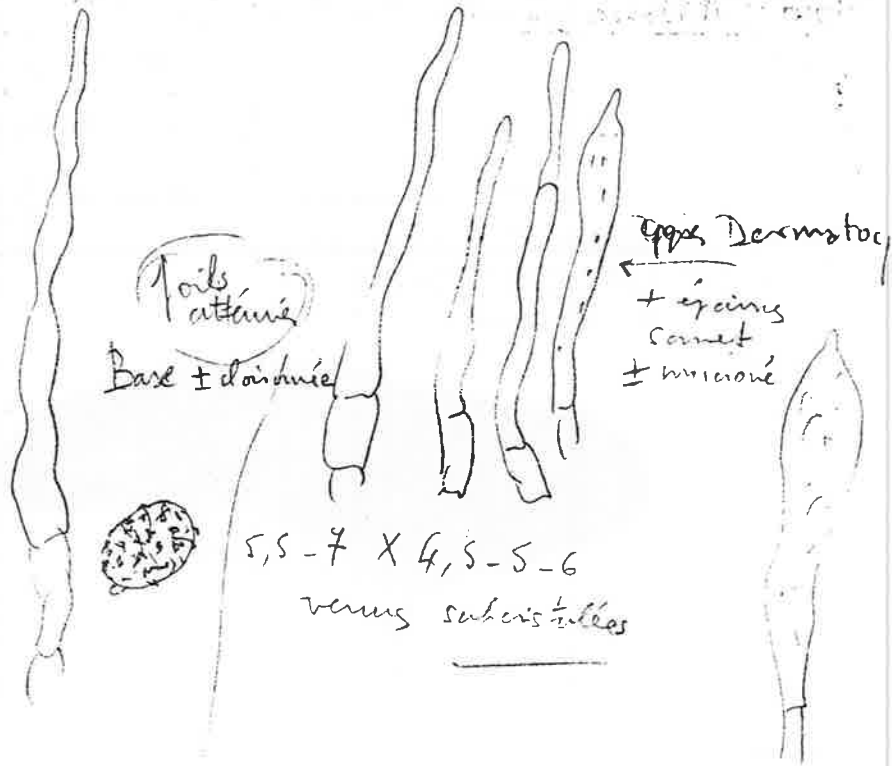 Poils
atténués
Base ± cloisonnée
qqes Dermatocy
± épaissis
sommet
± mucroné
5,5 - 7 X 4,5 - 5 - 6
verrues subcristulées
±